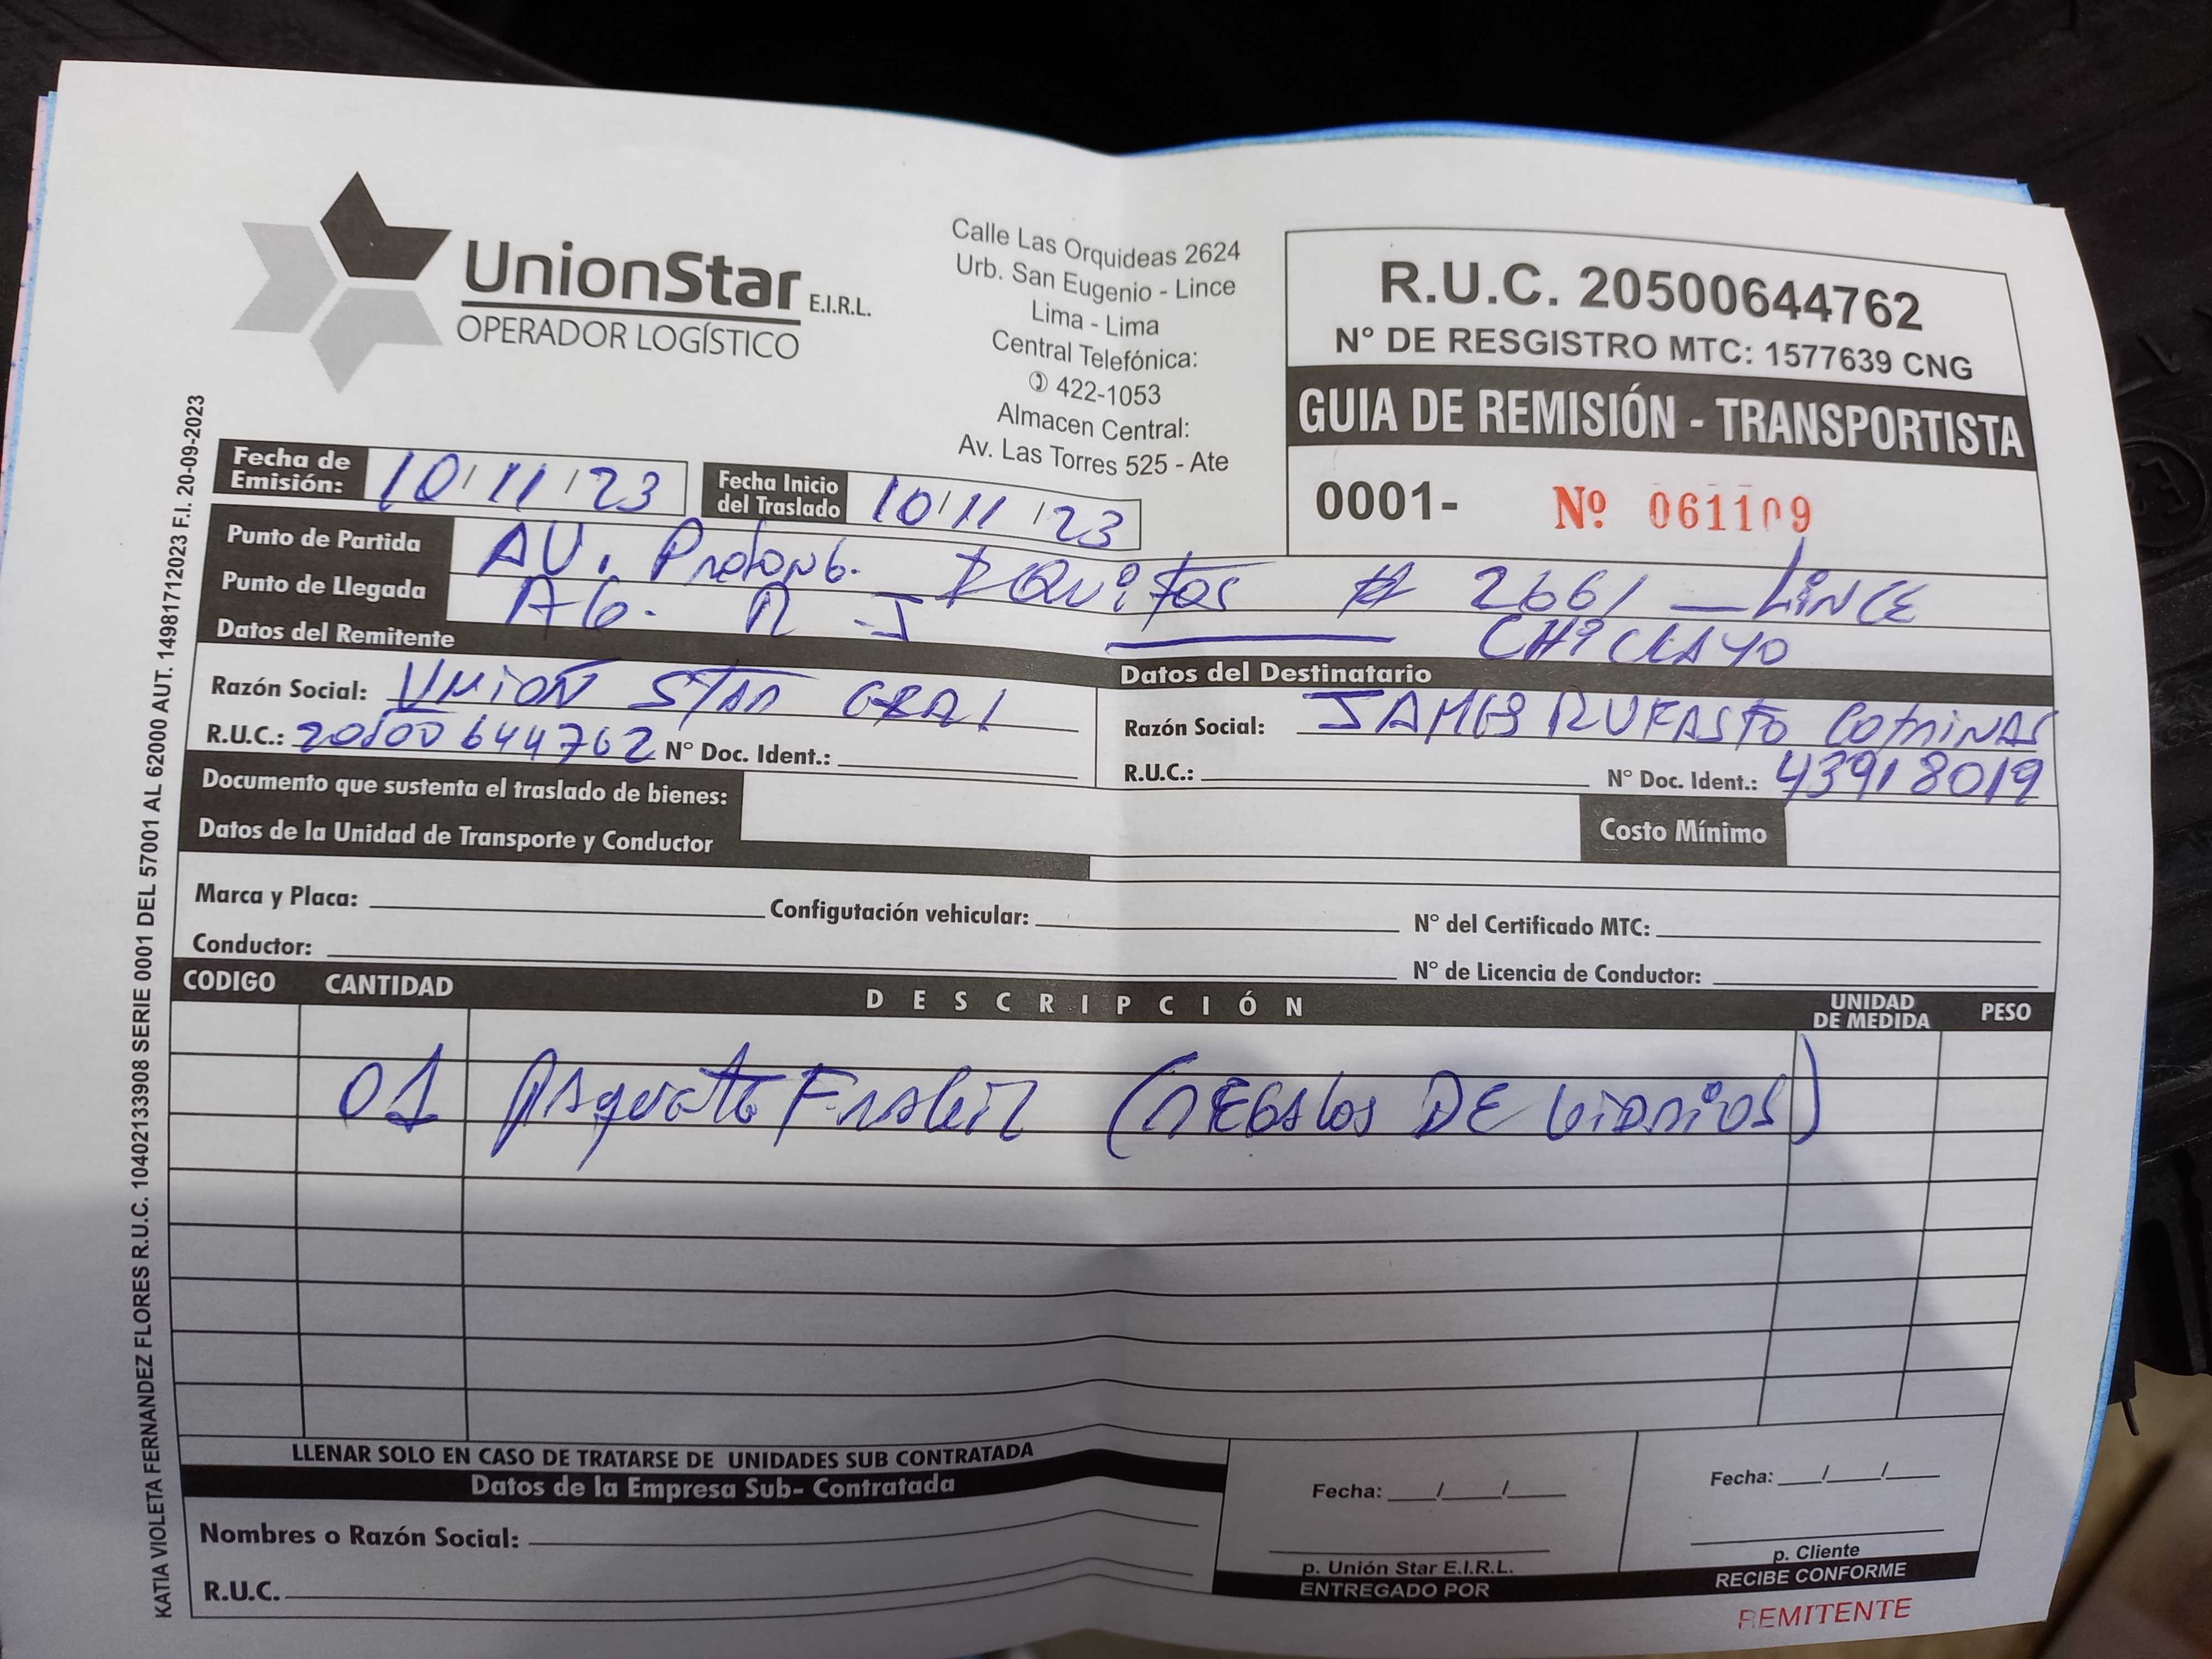 UnionStar E.I.R.L.
OPERADOR LOGÍSTICO
Calle Las Orquideas 2624
Urb. San Eugenio - Lince
Lima - Lima
Central Telefónica:
422-1053
Almacen Central:
Av. Las Torres 525 - Ate
R.U.C. 20500644762
N° DE RESGISTRO MTC: 1577639 CNG
GUIA DE REMISIÓN - TRANSPORTISTA
0001- Nº 061109
Fecha de Emisión: 10/11/23
Fecha Inicio del Traslado 10/11/23
Punto de Partida AV. Prolong. IQuitos # 2661 — LiNCE
Punto de Llegada AG. CHiCLAYO
Datos del Remitente
Razón Social: UNiON STAR
R.U.C.: 20500644762 N° Doc. Ident.:
Datos del Destinatario
Razón Social: JAMES RUFASTO COTRINAS
R.U.C.: N° Doc. Ident.: 43918019
Documento que sustenta el traslado de bienes:
Costo Mínimo
Datos de la Unidad de Transporte y Conductor
Marca y Placa: Configutación vehicular: N° del Certificado MTC:
Conductor: N° de Licencia de Conductor:
CODIGO CANTIDAD DESCRIPCIÓN UNIDAD DE MEDIDA PESO
01 Paquete Fragil (REGALOS DE ViDRiOS)
LLENAR SOLO EN CASO DE TRATARSE DE UNIDADES SUB CONTRATADA
Datos de la Empresa Sub- Contratada
Nombres o Razón Social:
R.U.C.
Fecha: / /
p. Unión Star E.I.R.L.
ENTREGADO POR
Fecha: / /
p. Cliente
RECIBE CONFORME
REMITENTE
KATIA VIOLETA FERNANDEZ FLORES R.U.C. 10402133908 SERIE 0001 DEL 57001 AL 62000 AUT. 14981712023 F.I. 20-09-2023